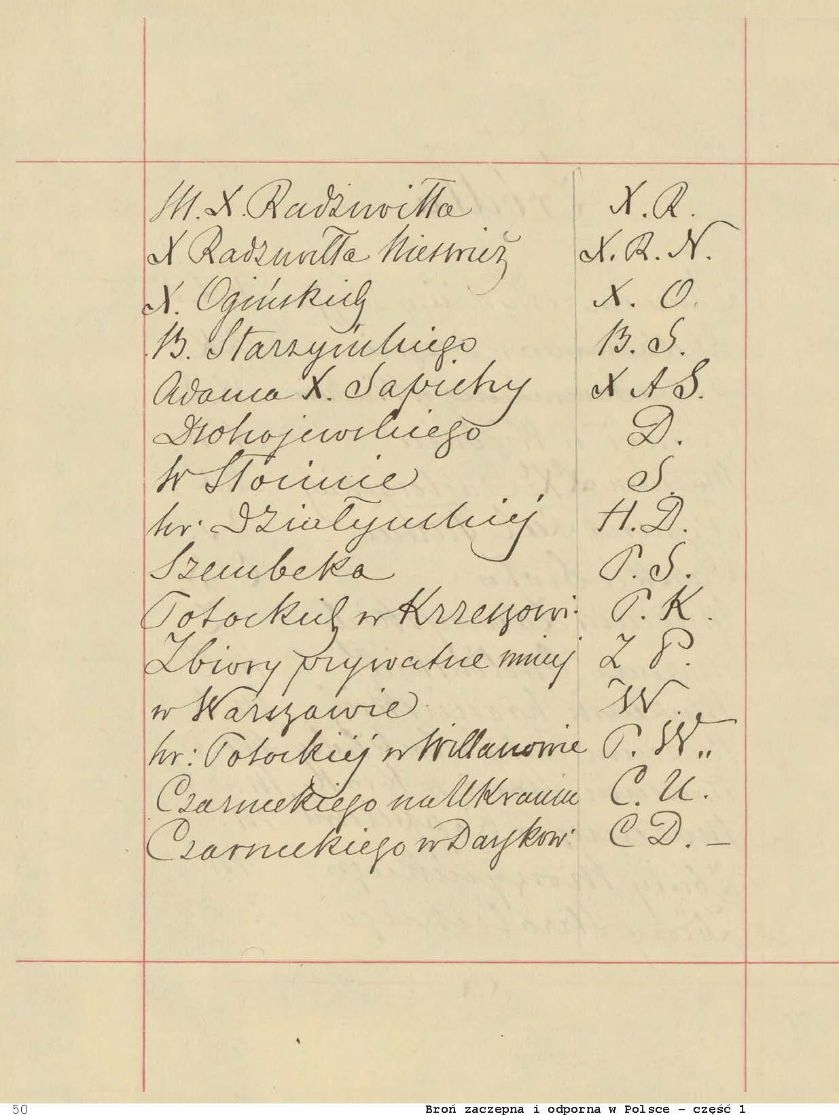 M. X. Radziwiłła X. R.
X Radziwiłła Nieswież X. R. N.
X. Ogińskich X. O.
B. Starzyńskiego B. S.
Adama X. Sapiehy X A S.
Drohojewskiego D.
W Słonimie S.
hr. Działyńskiej H. D.
Szembeka P. S.
Potockich w Krzeszowi. P. K.
Zbiory prywatne mniej Z P.
w Warszawie W
hr: Potockiej w Willanowie P. W„
Czarneckiego na Ukrainie C. U.
Czarneckiego w C D. —
50 Broń zaczepna i odporna w Polsce - część 1